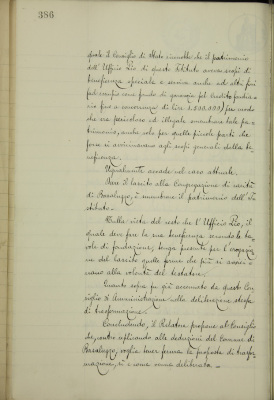 386
quale il Consiglio di Stato ammette che il patrimonio
dell'Ufficio Pio di questo Istituto avesse scopi di
beneficenza speciale e serviva anche ad altri fini
(ad esempio come fondo di garanzia pel Credito fondia-
rio fino a concorrenza di lire 1.000.000) per modo
che era pericoloso ed illegale smembrare tale pa-
trimonio, anche solo per quelle piccole parti che
forse si avvicinavano agli scopi generali della be-
neficenza.
Ugualmente accade nel caso attuale.
Dare il lascito alla Congregazione di carità
di Bassaluzzo, è smembrare il patrimonio dell'I-
stituto.
Nulla osta del resto che l'Ufficio Pio, il
quale deve fare la sua beneficenza secondo le ta-
vole di fondazione, tenga presenti per l'erogazio-
ne del lascito quelle forme che più si avvici-
nano alla volontà del testatore.
Quanto sopra fu già accennato da questo Con-
siglio di Amministrazione nella deliberazione stessa
di trasformazione.
Concludendo, il Relatore propone al Consiglio
che, contro replicando alle deduzioni del Comune di
Bassaluzzo, voglia tener ferma la proposta di trasfor-
mazione, sì e come venne deliberata.